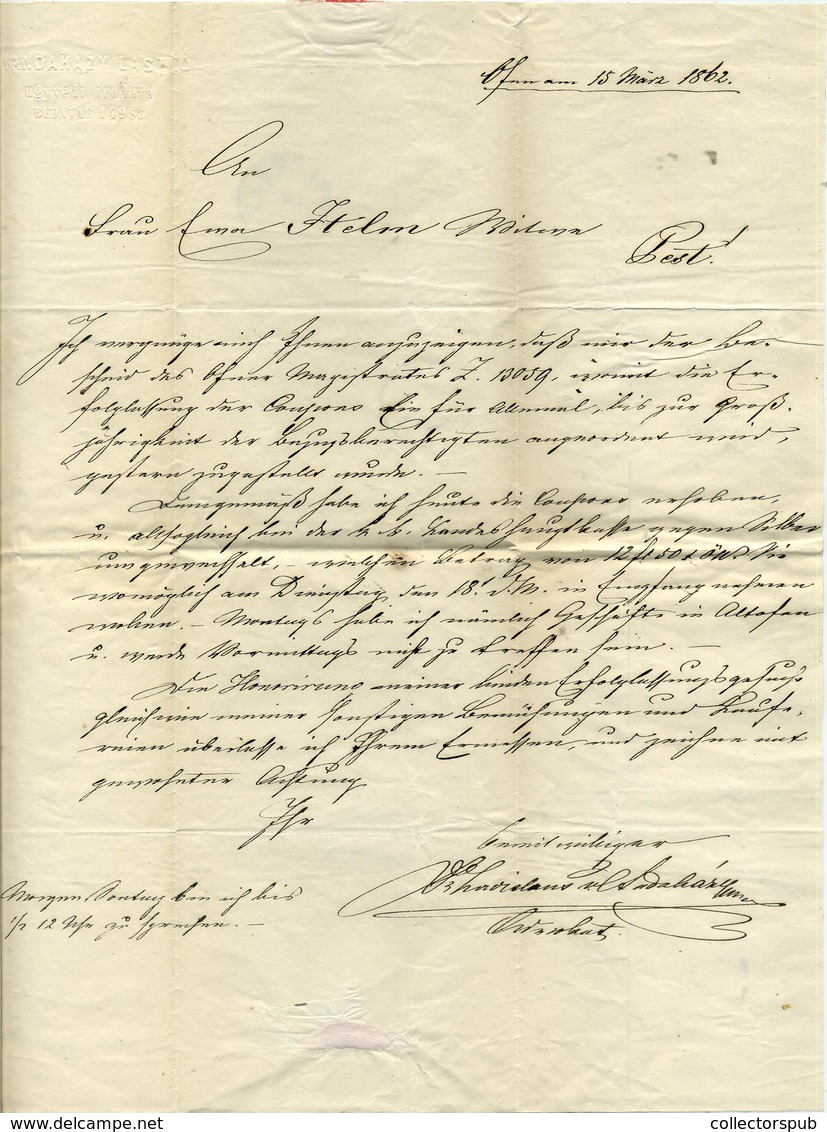 LÁSZLÓ
ügyvédi irodája
BUDAVÁR 149 SZ
Ofen am 15 März 1862.
An
Frau Ewa Helm Witwe
Pest!
Ich vergnüge mich Ihnen anzuzeigen, daß mir der Be-
scheid des Ofner Magistrates Z. 13059, womit die Er-
folglassung der Coupons Ein für Allemal, bis zur Groß-
jährigkeit der Bezugsberechtigten angeordnet wird,
gestern zugestellt wurde. —
Demgemäß habe ich heute die Coupons erhoben,
u. allsogleich bei der k. k. Landeshauptkasse gegen Silber
umgewechselt, – welchen Betrag von 12 fl 50 x öW. Sie
womöglich am Dienstag den 18t. d. M. in Empfang nehmen
wollen. – Montags habe ich nämlich Geschäfte in Altofen
u. werde Vormittags nicht zu treffen sein. —
Die Honorirung meiner beiden Erfolglassungsgesuche
gleichwie meiner sonstigen Bemühungen und Laufe-
reien überlasse ich Ihrem Ermessen, und zeichne mit
gewohnter Achtung
Ihr
bereitwilliger
Ladislaus
Advokat.
Morgen Sontag bin ich bis
1/2 12 Uhr zu sprechen. —
collectorspub